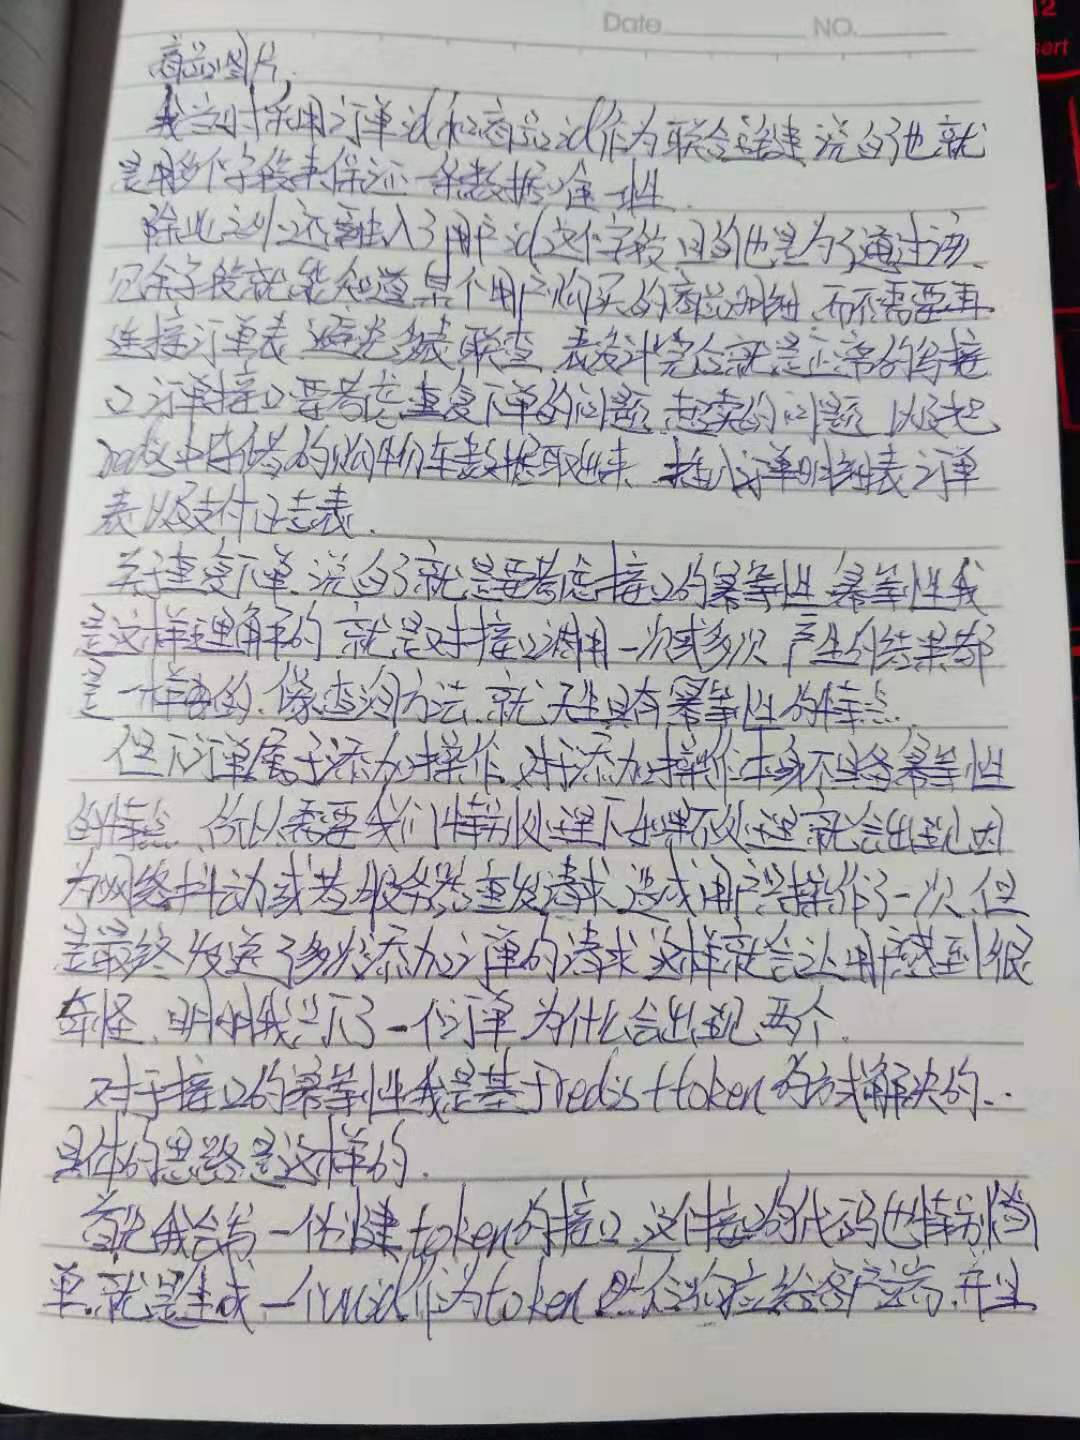 Date NO.
商品图片,
我当时采用订单id和商品id作为联合主键 说白了也就
是用多个字段来保证一条数据唯一性.
除此之外 还融入了用户id这个字段 目的也是为了通过该
冗余字段就能知道某个用户购买的商品明细 而不需要再
连接订单表 避免多表联查 表设计完后就是正常的写接
口 订单接口要考虑重复下单的问题 超卖的问题 以及把
中存储的购物车数据取出来 插入订单明细表 订单
表以及支付日志表.
关于重复下单 说白了就是要考虑接口的幂等性 幂等性我
是这样理解的 就是对接口调用一次或多次 产生的结果都
是一样的. 像查询方法 就天生具有幂等性的特点.
但下订单属于添加操作 对于添加操作本身不具备幂等性
的特点 所以需要我们特别处理下 如果不处理 就会出现因
为网络抖动或者服务器重发请求 造成用户只操作了一次 但
是最终发送了多次添加订单的请求 这样就会让用户感到很
奇怪 明明我只下了一个订单 为什么会出现两个.
对于接口的幂等性我是基于redis+token的方式解决的..
具体的思路是这样的.
首先我会写一个创建token的接口 这个接口的代码也特别简
单. 就是生成一个uuid作为token 然后响应给客户端 并且